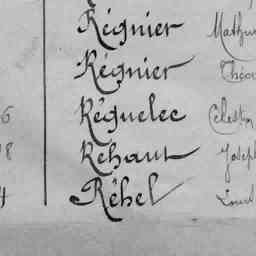 Régnier Mathu
Régnier Théo
6 Réguelec Célestin
8 Réhault Joseph
4 Réhel Louis